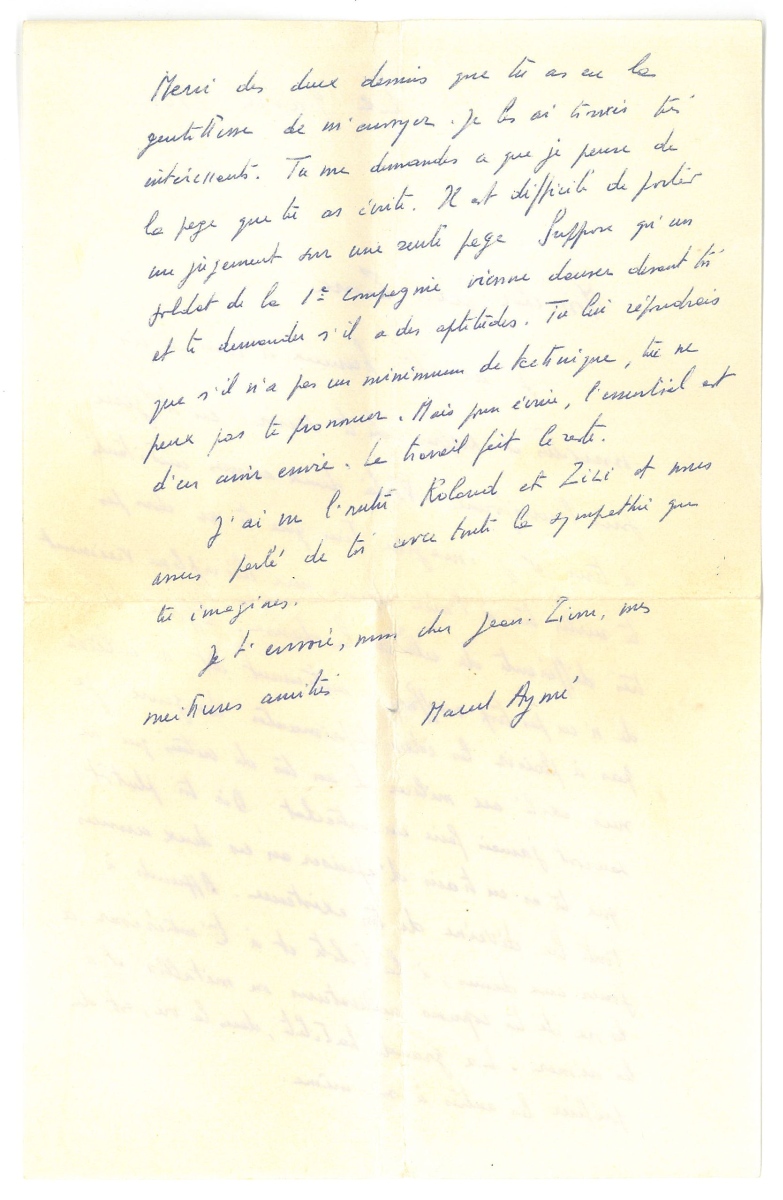 Merci des deux dessins que tu as eu la
gentillesse de m'envoyer. Je les ai trouvés très
intéressants. Tu me demandes ce que je pense de
la page que tu as écrite. Il est difficile de porter
un jugement sur une seule page Suppose qu'un
soldat de la 1re compagnie vienne danser devant toi
et te demander s'il a des aptitudes. Tu lui répondrais
que s'il n'a pas un minimum de technique, tu ne
peux pas te prononcer. Mais pour écrire, l'essentiel est
d'en avoir envie. Le travail fait le reste.
J'ai vu l'autre Roland et Zizi et nous
avons parlé de toi avec toute la sympathie que
tu imagines.
Je t'envoie, mon cher Jean-Pierre, mes
meilleures amitiés
Marcel Aymé